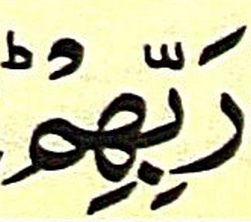 رَبِّهِمْؕ